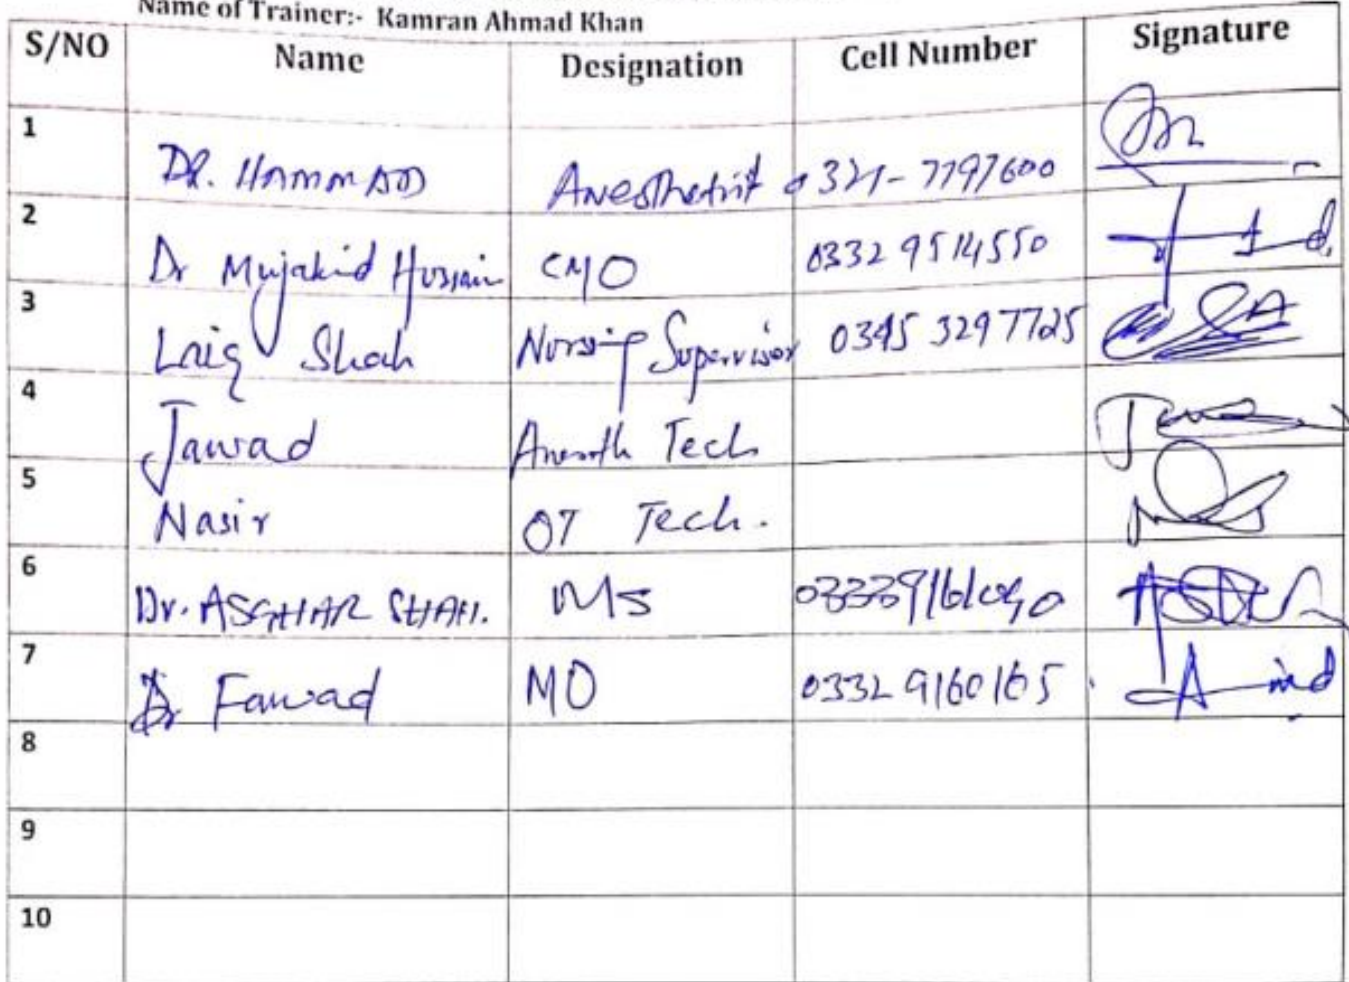 Name of Trainer:- Kamran Ahmad Khan
S/NO Name Designation Cell Number Signature
1 DR. HAMMAD Anesthetist 0321-7797600
2 Dr Mujahid Hussain CMO 0332 9514550
3 Laiq Shah Nursing Supervisor 0345 3297725
4 Jawad Anesth Tech
5 Nasir OT Tech.
6 Dr. ASGHAR SHAH. MS
7 Dr Fawad MO 0332 9160165
8
9
10